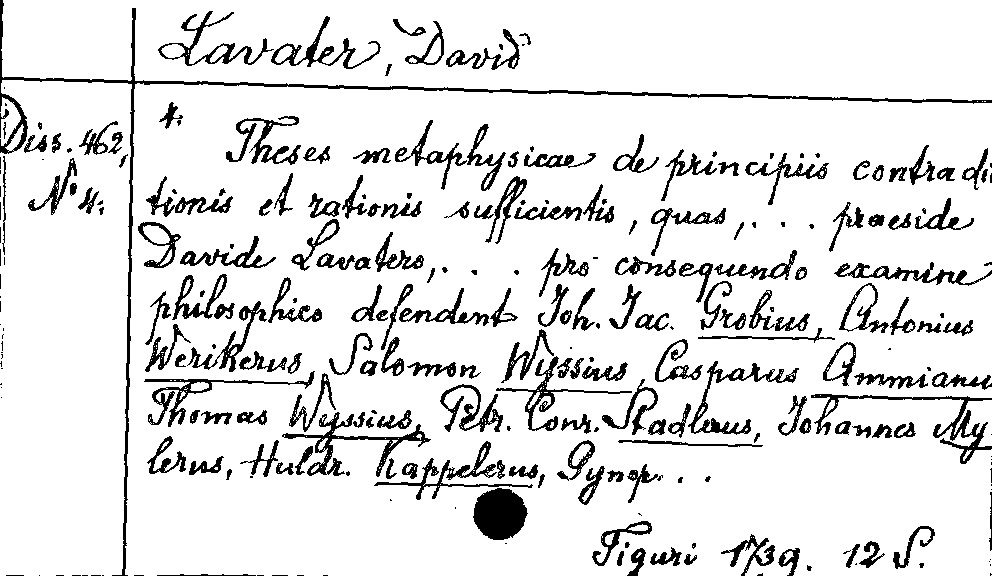 Lavater, David
Diss. 462,
No 4.
4.
Theses metaphysicae de principiis contradic
tionis et rationis sufficientis, quas, . . . praeside
Davide Lavatero, . . . pro consequendo examine
philosophico defendent Joh. Jac. Grobius, Antonius
Werikerus, Salomon Wyssius, Casparus Ammianus
Thomas Wyssius, Petr. Conr. Stadlerus, Johannes My
lerus, Huldr. Kappelerus, Gynop. . .
Tiguri 1739. 12 S.